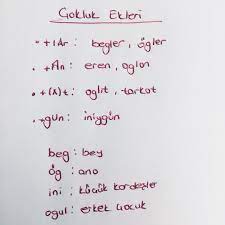 Çokluk Ekleri
• +lAr : begler, ögler
• +An : eren, oglan
• +(A)t : oglıt, tarkat
• +gün : iniygün
beg : bey
ög : ana
ini : küçük kardeşler
ogul : erkek çocuk